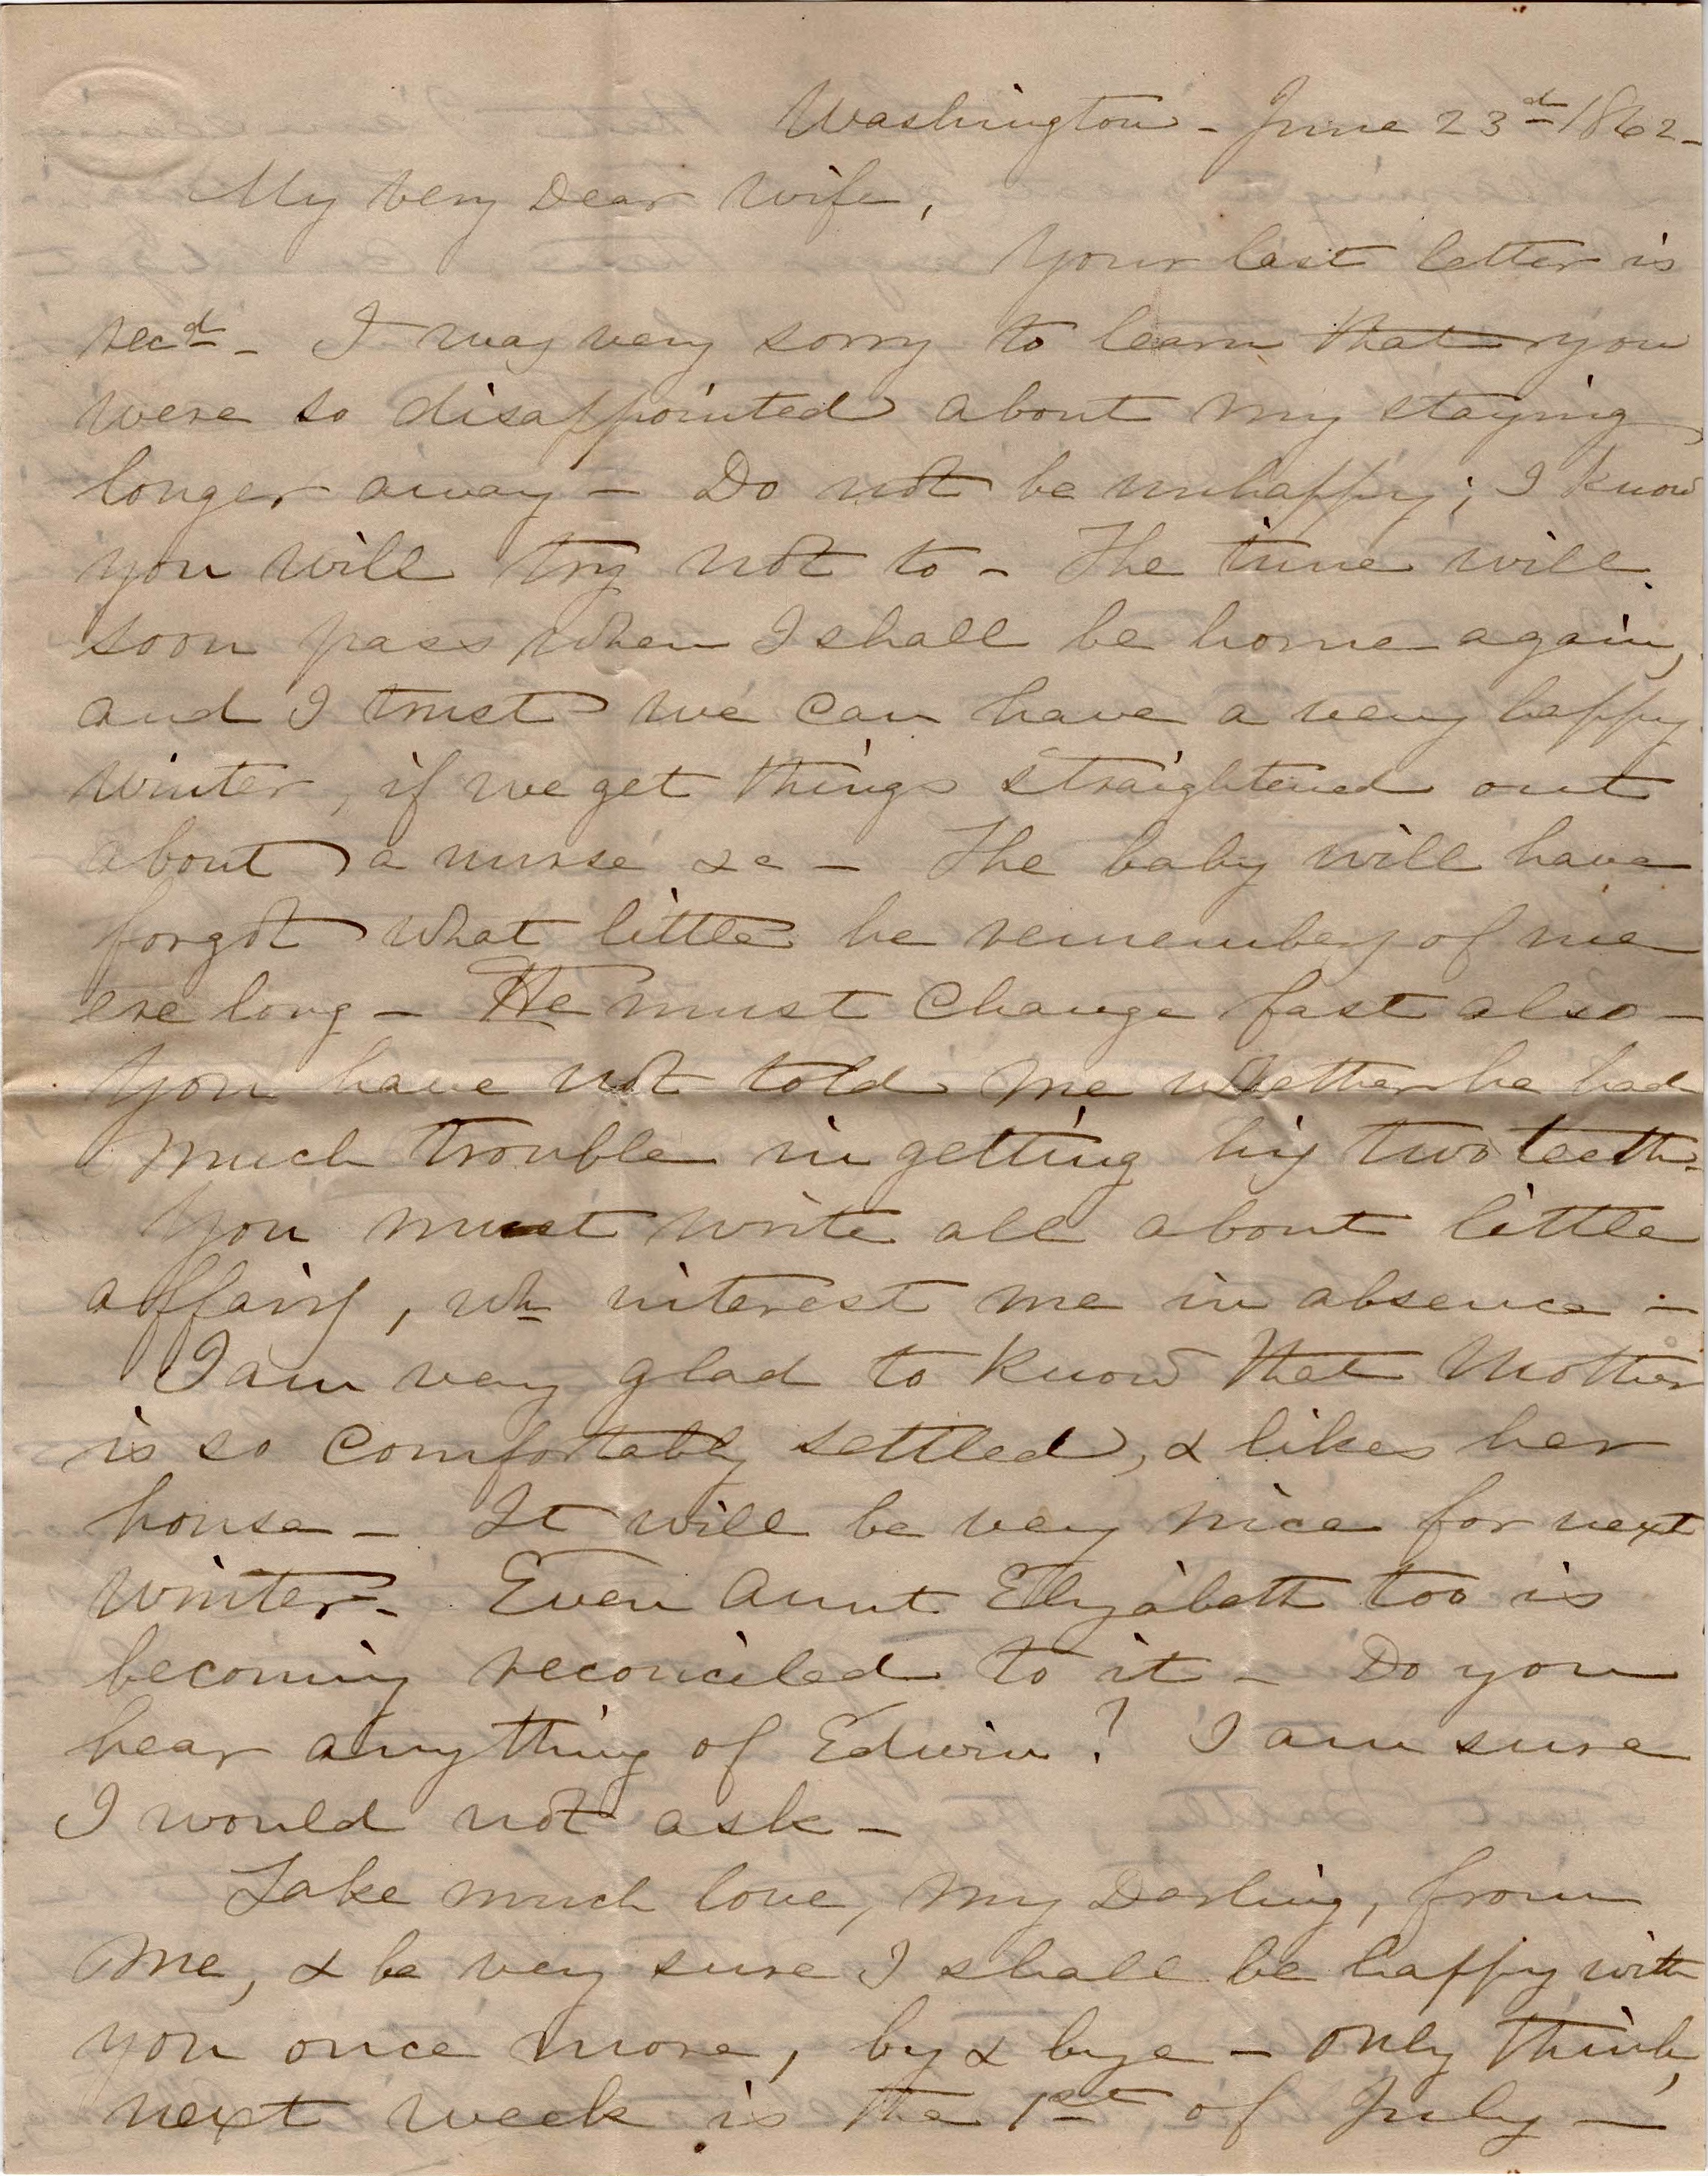 Washington - June 23d 1862 -
My very Dear Wife,
Your last letter is
recd - I was very sorry to learn that you
were so disappointed about my staying
longer away - Do not be unhappy; I know
you will try not to - The time will
soon pass when I shall be home again,
and I trust we can have a very happy
winter, if we get things straightened out
about a nurse &c - The baby will have
forgot what little he remembers of me
ere long - He must change fast also -
You have not told me whether he had
much trouble in getting his two teeth -
You must write all about little
affairs, wh interest me in absence -
I am very glad to know that Mother
is so comfortably settled, & likes her
house - It will be very nice for next
winter - Even Aunt Elizabeth too is
becoming reconciled to it - Do you
hear anything of Edwin? I am sure
I would not ask -
Take much love, my Darling, from
me, & be very sure I shall be happy with
you once more, by & bye - only think,
next week is the 1st of July -